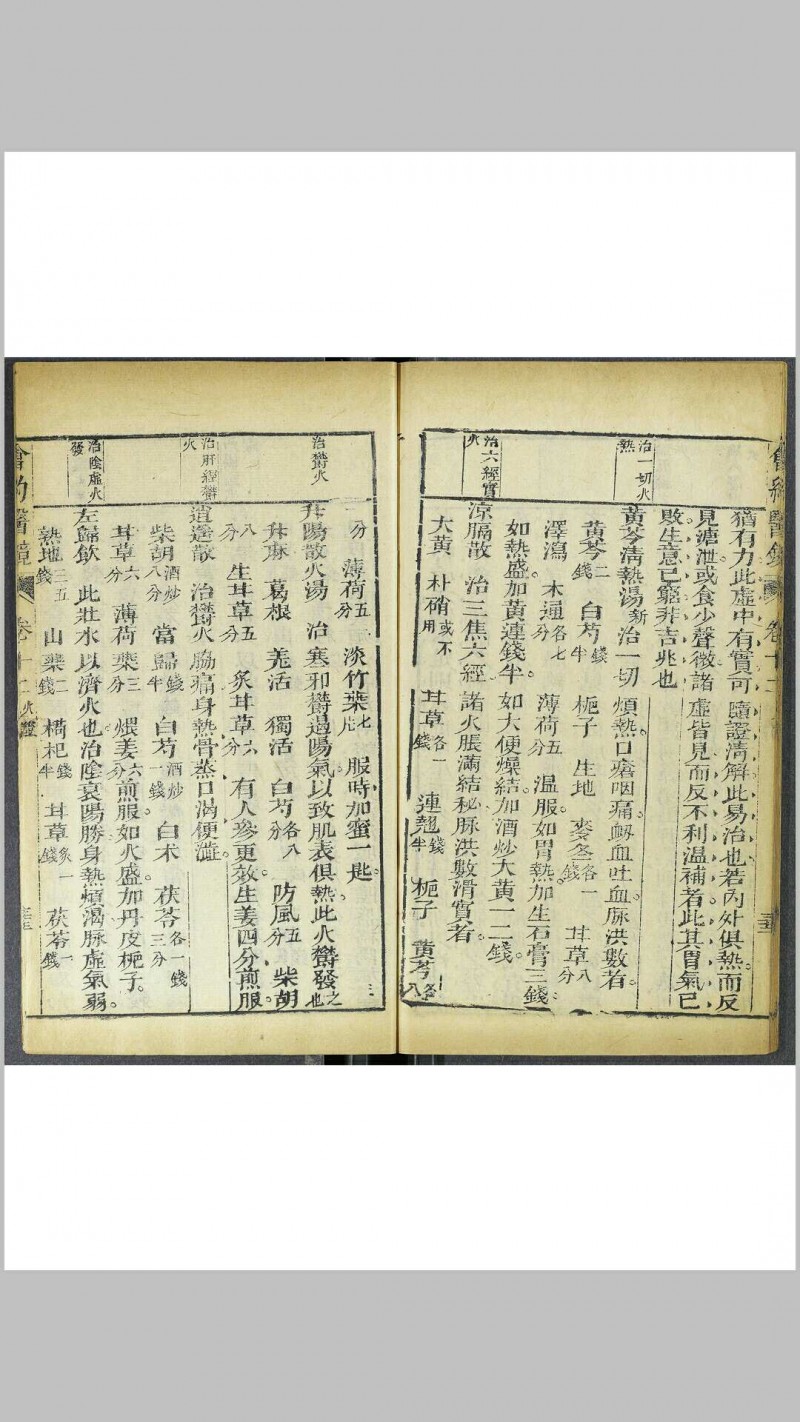 會約醫鏡 卷十二
猶有力此虛中有實可隨證清解此易治也若內外俱熱而反
見溏泄或食少聲微諸虛皆見而反不利溫補者此其胃氣已
敗生意已窮非吉兆也
治一切火熱
黃芩清熱湯新 治一切煩熱口瘡咽痛衂血吐血脉洪數者
黃芩二錢 白芍錢半 梔子 生地 麥冬各一錢 甘草八分
澤瀉 木通各七分 薄荷五分 溫服如胃熱加生石膏三錢
如熱盛加黃連錢半 如大便燥結加酒炒大黃一二錢
治六經實火
涼膈散 治三焦六經諸火脹滿結秘脉洪數滑實者
大黃 朴硝或不用 甘草各一錢 連翹錢半 梔子 黃芩各八
分 薄荷五分 淡竹葉七片 服時加蜜一匙
治欝火
升陽散火湯 治寒邪欝遏陽氣以致肌表俱熱此火欝發之也
升麻 葛根 羌活 獨活 白芍各八分 防風五分 柴胡
八分 生甘草五分 炙甘草六分 有人參更效生姜四分煎服
治肝經欝火
逍遙散 治欝火脇痛身熱骨蒸口渴便澁
柴胡酒炒八分 當歸錢半 白芍酒炒一錢 白术 茯苓各一錢三分
甘草六分 薄荷葉三分 煨姜六分煎服如火盛加丹皮梔子
治陰虛火發
左歸飲 此壯水以濟火也治陰衰陽勝身熱煩渴脉虛氣弱
熟地三五錢 山藥二錢 枸杞錢半 甘草炙一錢 茯苓一錢
會約醫鏡 卷十二 火證